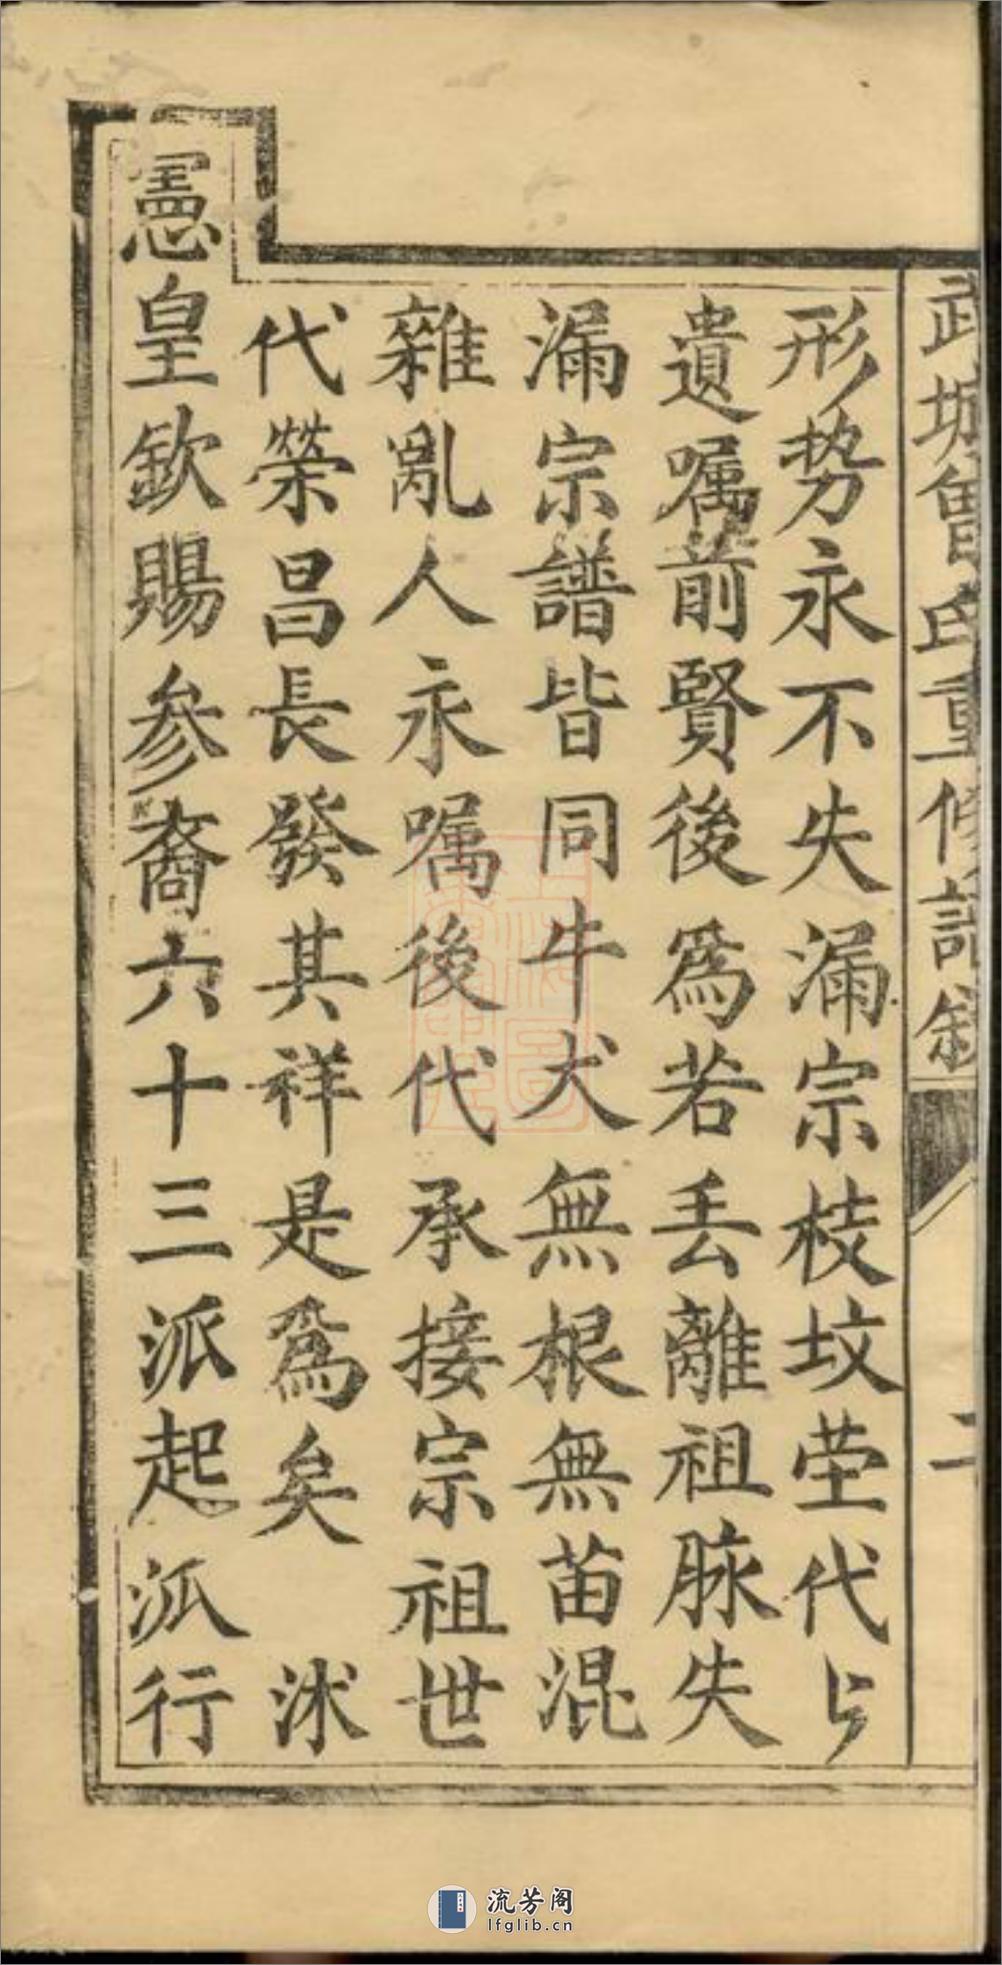 武城曾氏重修譜敘
二
形势永不失漏宗枝坟茔代〻
遺嘱前賢後為若丢離祖脉失
漏宗譜皆同牛犬無根無苗混
雜亂人永嘱後代承接宗祖世
代荣昌長發其祥是為矣 沭
憲皇欽賜参裔六十三派起派行
流芳阁
lfglib.cn